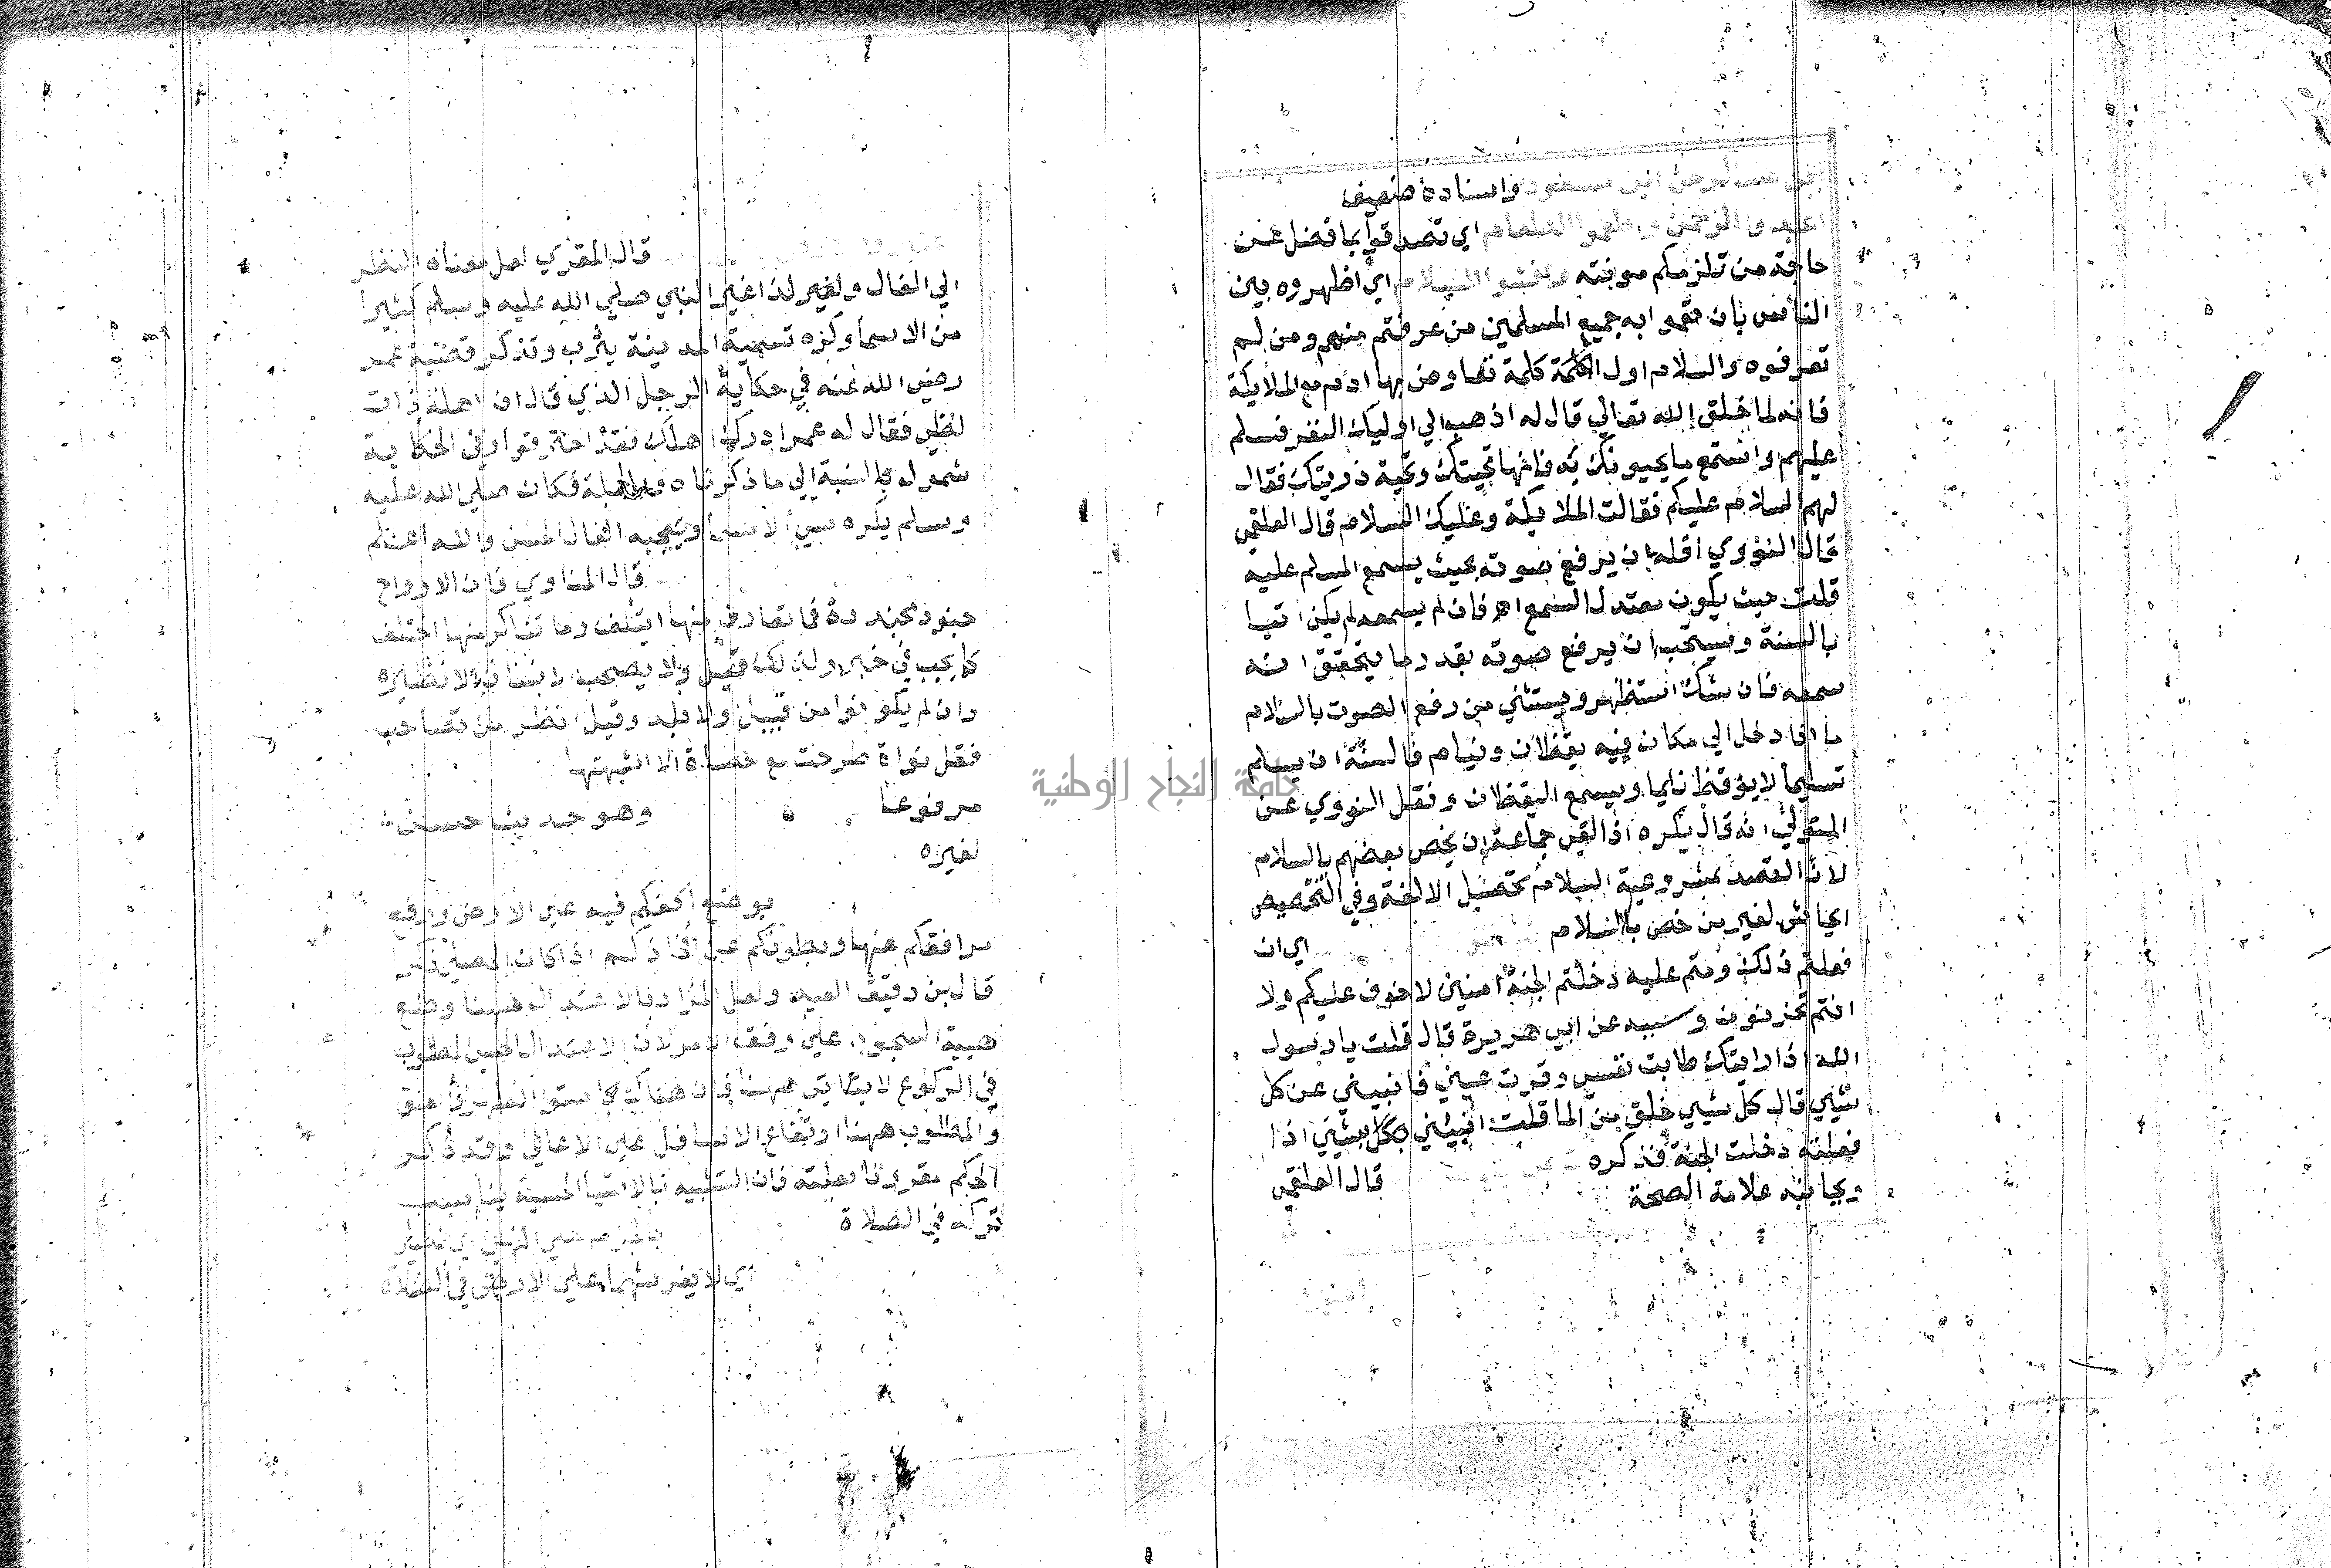 واسناده ضعيف
اعبدوا الرحمن واطعموا الطعام اي تصدقوا بما فضل عن
حاجة من تلزمكم مونته وافشوا السلام اي اظهروه بين
الناس بان تعموا به جميع المسلمين من عرفتم منهم ومن لم
تعرفوه والسلام اول كلمة تفاوض بها ادم مع الملايكة
فانه لما خلق الله تعالي قال له اذهب الي اوليك النفر فسلم
عليهم واستمع ما يحيونك به فانها تحيتك وتحية ذريتك فقال
لهم السلام عليكم فقالت الملايكة وعليك السلام قال العلقمي
قال النووي اقله ان يرفع صوته بحيث يسمع المسلم عليه
قلت حيث يكون معتدل السمع اهـ فان لم يسمعه لم يكن اتيا
بالسنة ويستحب ان يرفع صوته بقدر ما يتحقق انه
سمعه فان شك استظهر ويستثني من رفع الصوت بالسلام
ما اذا دخل الي مكان فيه يقظان ونيام فالسنة ان يسلم
تسليما لا يوقظ نايما ويسمع اليقظان ونقل النووي عن
المتولي انه قال يكره اذا لقي جماعة ان يخص بعضهم بالسلام
لان القصد بمشروعية السلام تحصيل الالفة وفي التخصيص
ايحاش لغير من خص بالسلام اي ان
فعلتم ذلك ومتم عليه دخلتم الجنة امنين لا خوف عليكم ولا
انتم تحزنون وسببه عن ابي هريرة قال قلت يا رسول
الله اذا رايتك طابت نفسي وقرت عيني فانبيني عن كل
شيي قال كل شيي خلق من الما قلت انبيني بشيي اذا
فعلته دخلت الجنة فذكره
وبجانبه علامة الصحة قال العلقمي
قال المقري اصل معناه النظر
الي الفال ولغير لذا غير النبي صلي الله عليه وسلم كثيرا
من الاسما وكره تسمية المدينة يثرب وتذكر قضية عمر
رضي الله عنه في حكاية الرجل الذي قال ان اهله ذات
لظي فقال له عمر ادرك اهلك فقد احترقوا وفي الحكاية
شمول بالنسبة الي ما ذكرناه وبالجملة فكان صلي الله عليه
وسلم يكره سيي الاسما ويعجبه الفال الحسن والله اعلم
قال المناوي فان الارواح
جنود مجندة فما تعارف منها ايتلف وما تناكر منها اختلف
كما يجيي في خبر ولذلك قيل ولا يصحب الانسان الا نظيره
وان لم يكونوا من قبيل ولا بلد وقيل انظر من تصاحب
فقل نواة طرحت مع حصاة الا اشبهتها
مرفوعا وهو حديث حسن
لغيره
بوضع اكفكم فيه علي الارض ورفع
مرافقكم عنها وبطونكم عن افخاذكم اذا كان المصلي ذكرا
قال بن دقيق العيد ولعل المراد بالاعتدال ههنا وضع
هيية السجود علي وفق الامر لان الاعتدال الحسي المطلوب
في الركوع لا يتاتي ههنا فان هناك استوا الظهر والعنق
والمطلوب ههنا ارتفاع الاسافل علي الاعالي وقد ذكر
الحكم مقرونا بعلته فان التشبيه بالاشيا الخسيسة يناسب
تركه في الصلاة
بالجزم علي النهي
اي لا يفرشهما علي الارض في الصلاة
جامعة النجاح الوطنية